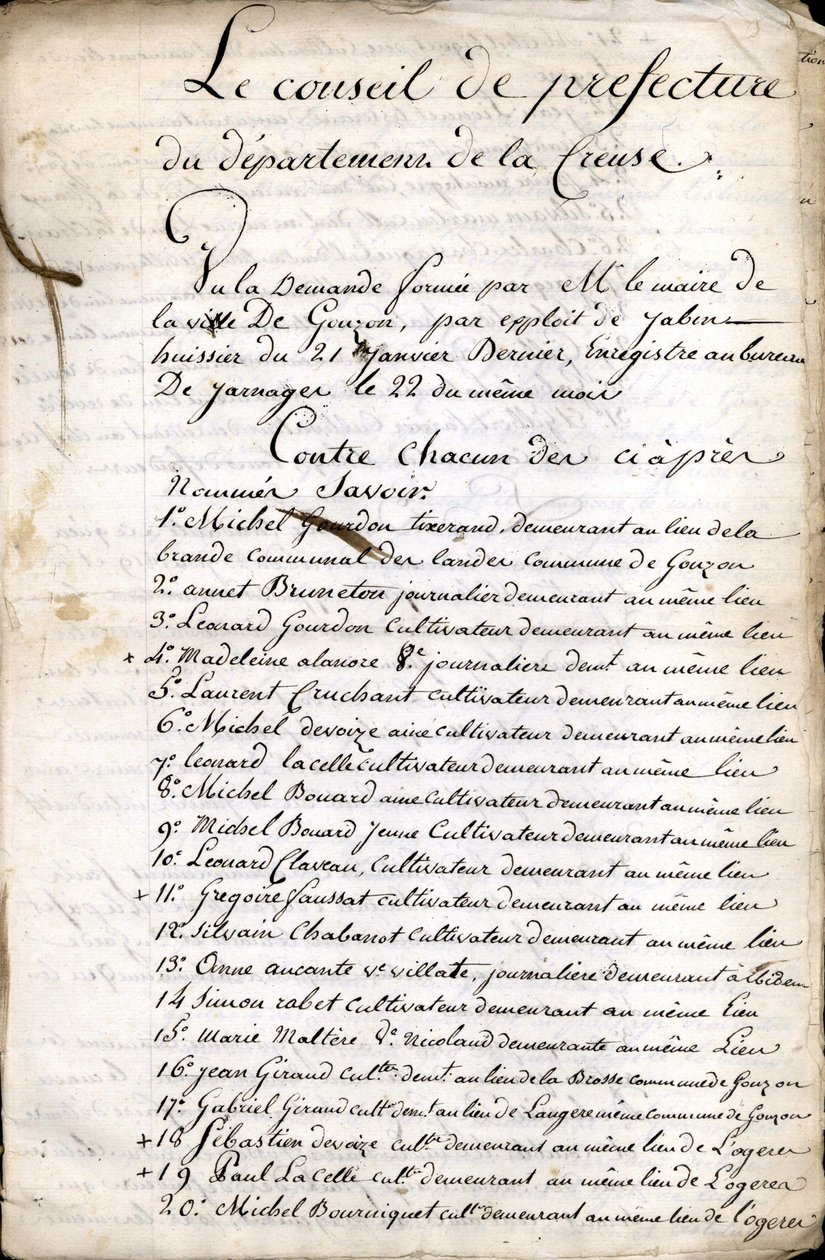 Le conseil de prefecture
du département de la Creuse.
Vu la Demande formée par Mr le maire de
la ville De Gouzon, par exploit de Jabin
huissier du 21 Janvier Dernier, Enregistre au bureau
De Jarnages le 22 du même mois
Contre chacun des ci après
Nommés Savoir.
1º Michel Gourdon tixerand, demeurant au lieu de la
brande communal des landes commune de Gouzon
2º annet Bruneton journalier demeurant au même lieu
3º Leonard Gourdon cultivateur demeurant au même lieu
x 4º Madeleine alanore journaliere demt au même lieu
5º Laurent Cruchant cultivateur demeurant au même lieu
6º Michel devoize ainé cultivateur demeurant au même lieu
7º leonard lacelle cultivateur demeurant au même lieu
8º Michel Bouard ainé cultivateur demeurant au même lieu
9º Michel Bouard Jeune Cultivateur demeurant au même lieu
10º Leonard Claveau, cultivateur demeurant au même lieu
+ 11º Gregoire faussat cultivateur demeurant au même lieu
12º Silvain Chabanot cultivateur demeurant au même lieu
13º Anne aucante ve villate, journaliere demeurant à
14 Simon rabet cultivateur demeurant au même lieu
15º Marie Maltère Nicolaud demeurante au même Lieu
16º jean Giraud cultr demt au lieu de la Brosse commune de Gouzon
17º Gabriel Giraud cultr demt au lieu de Laugere même commune de Gouzon
+ 18 Sébastien devoize cultr demeurant au même lieu de L'ogeres
+ 19 Paul La celle cultr demeurant au même lieu de Logeres
20º Michel Bourniquet cultr demeurant au même lieu de l'ogeres